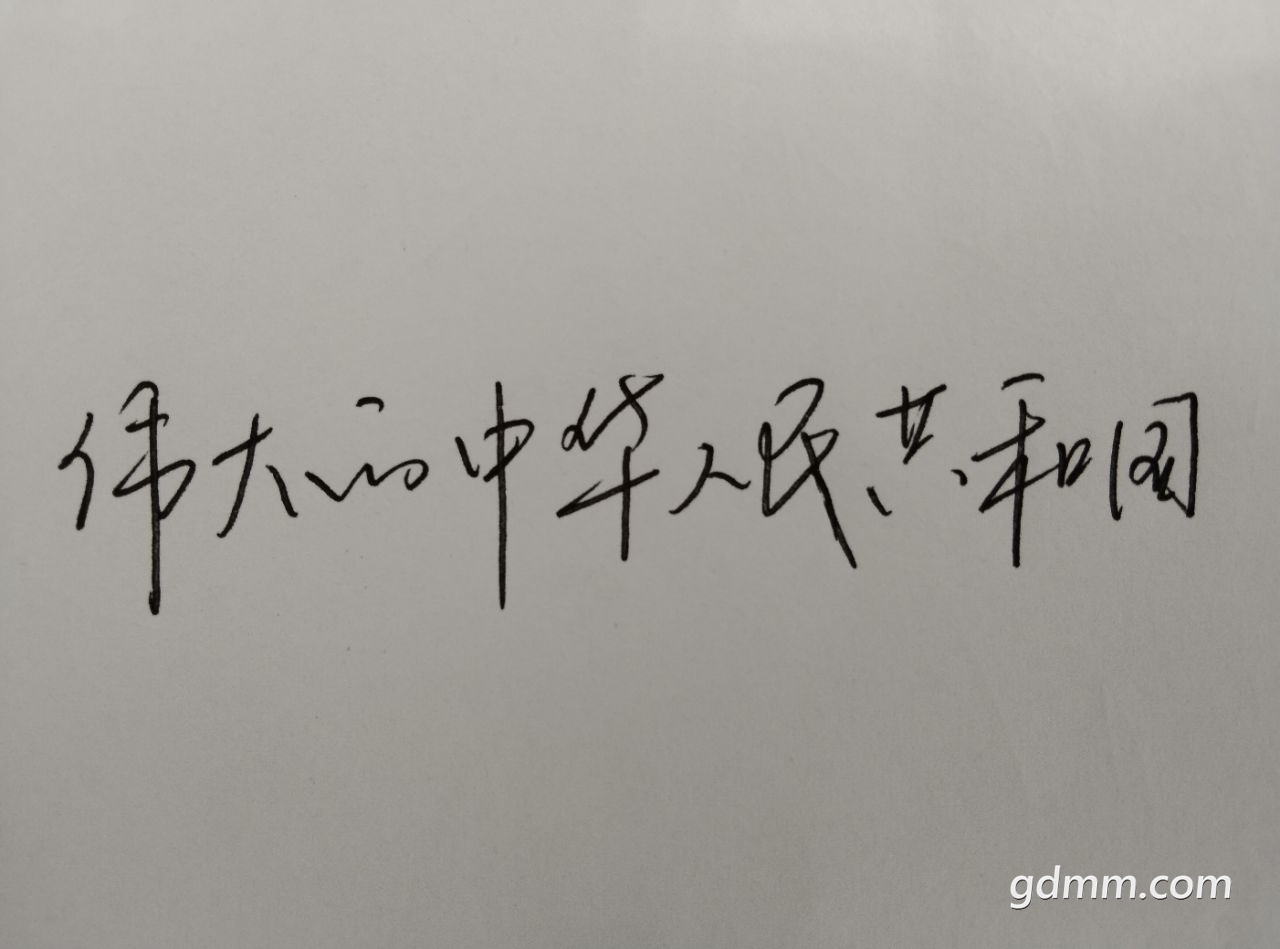 伟大的中华人民共和国
gdmm.com